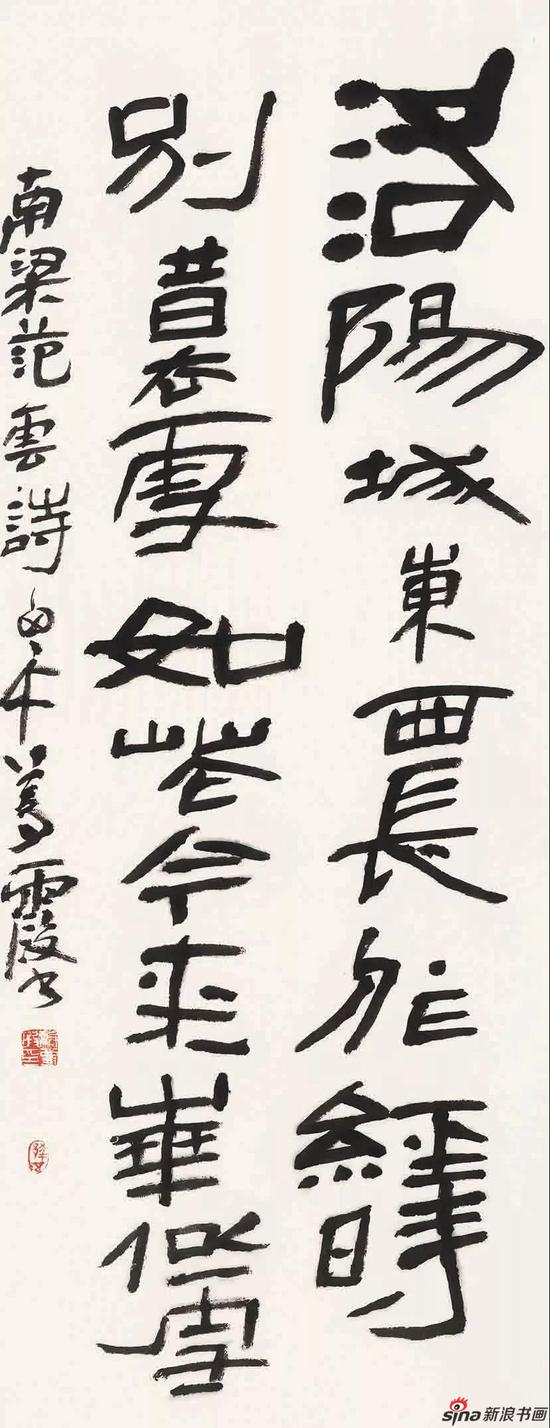 洛陽城東西長作經時
別昔去雪如花今來華似雪
南梁范雲詩 霞书
sina新浪书画